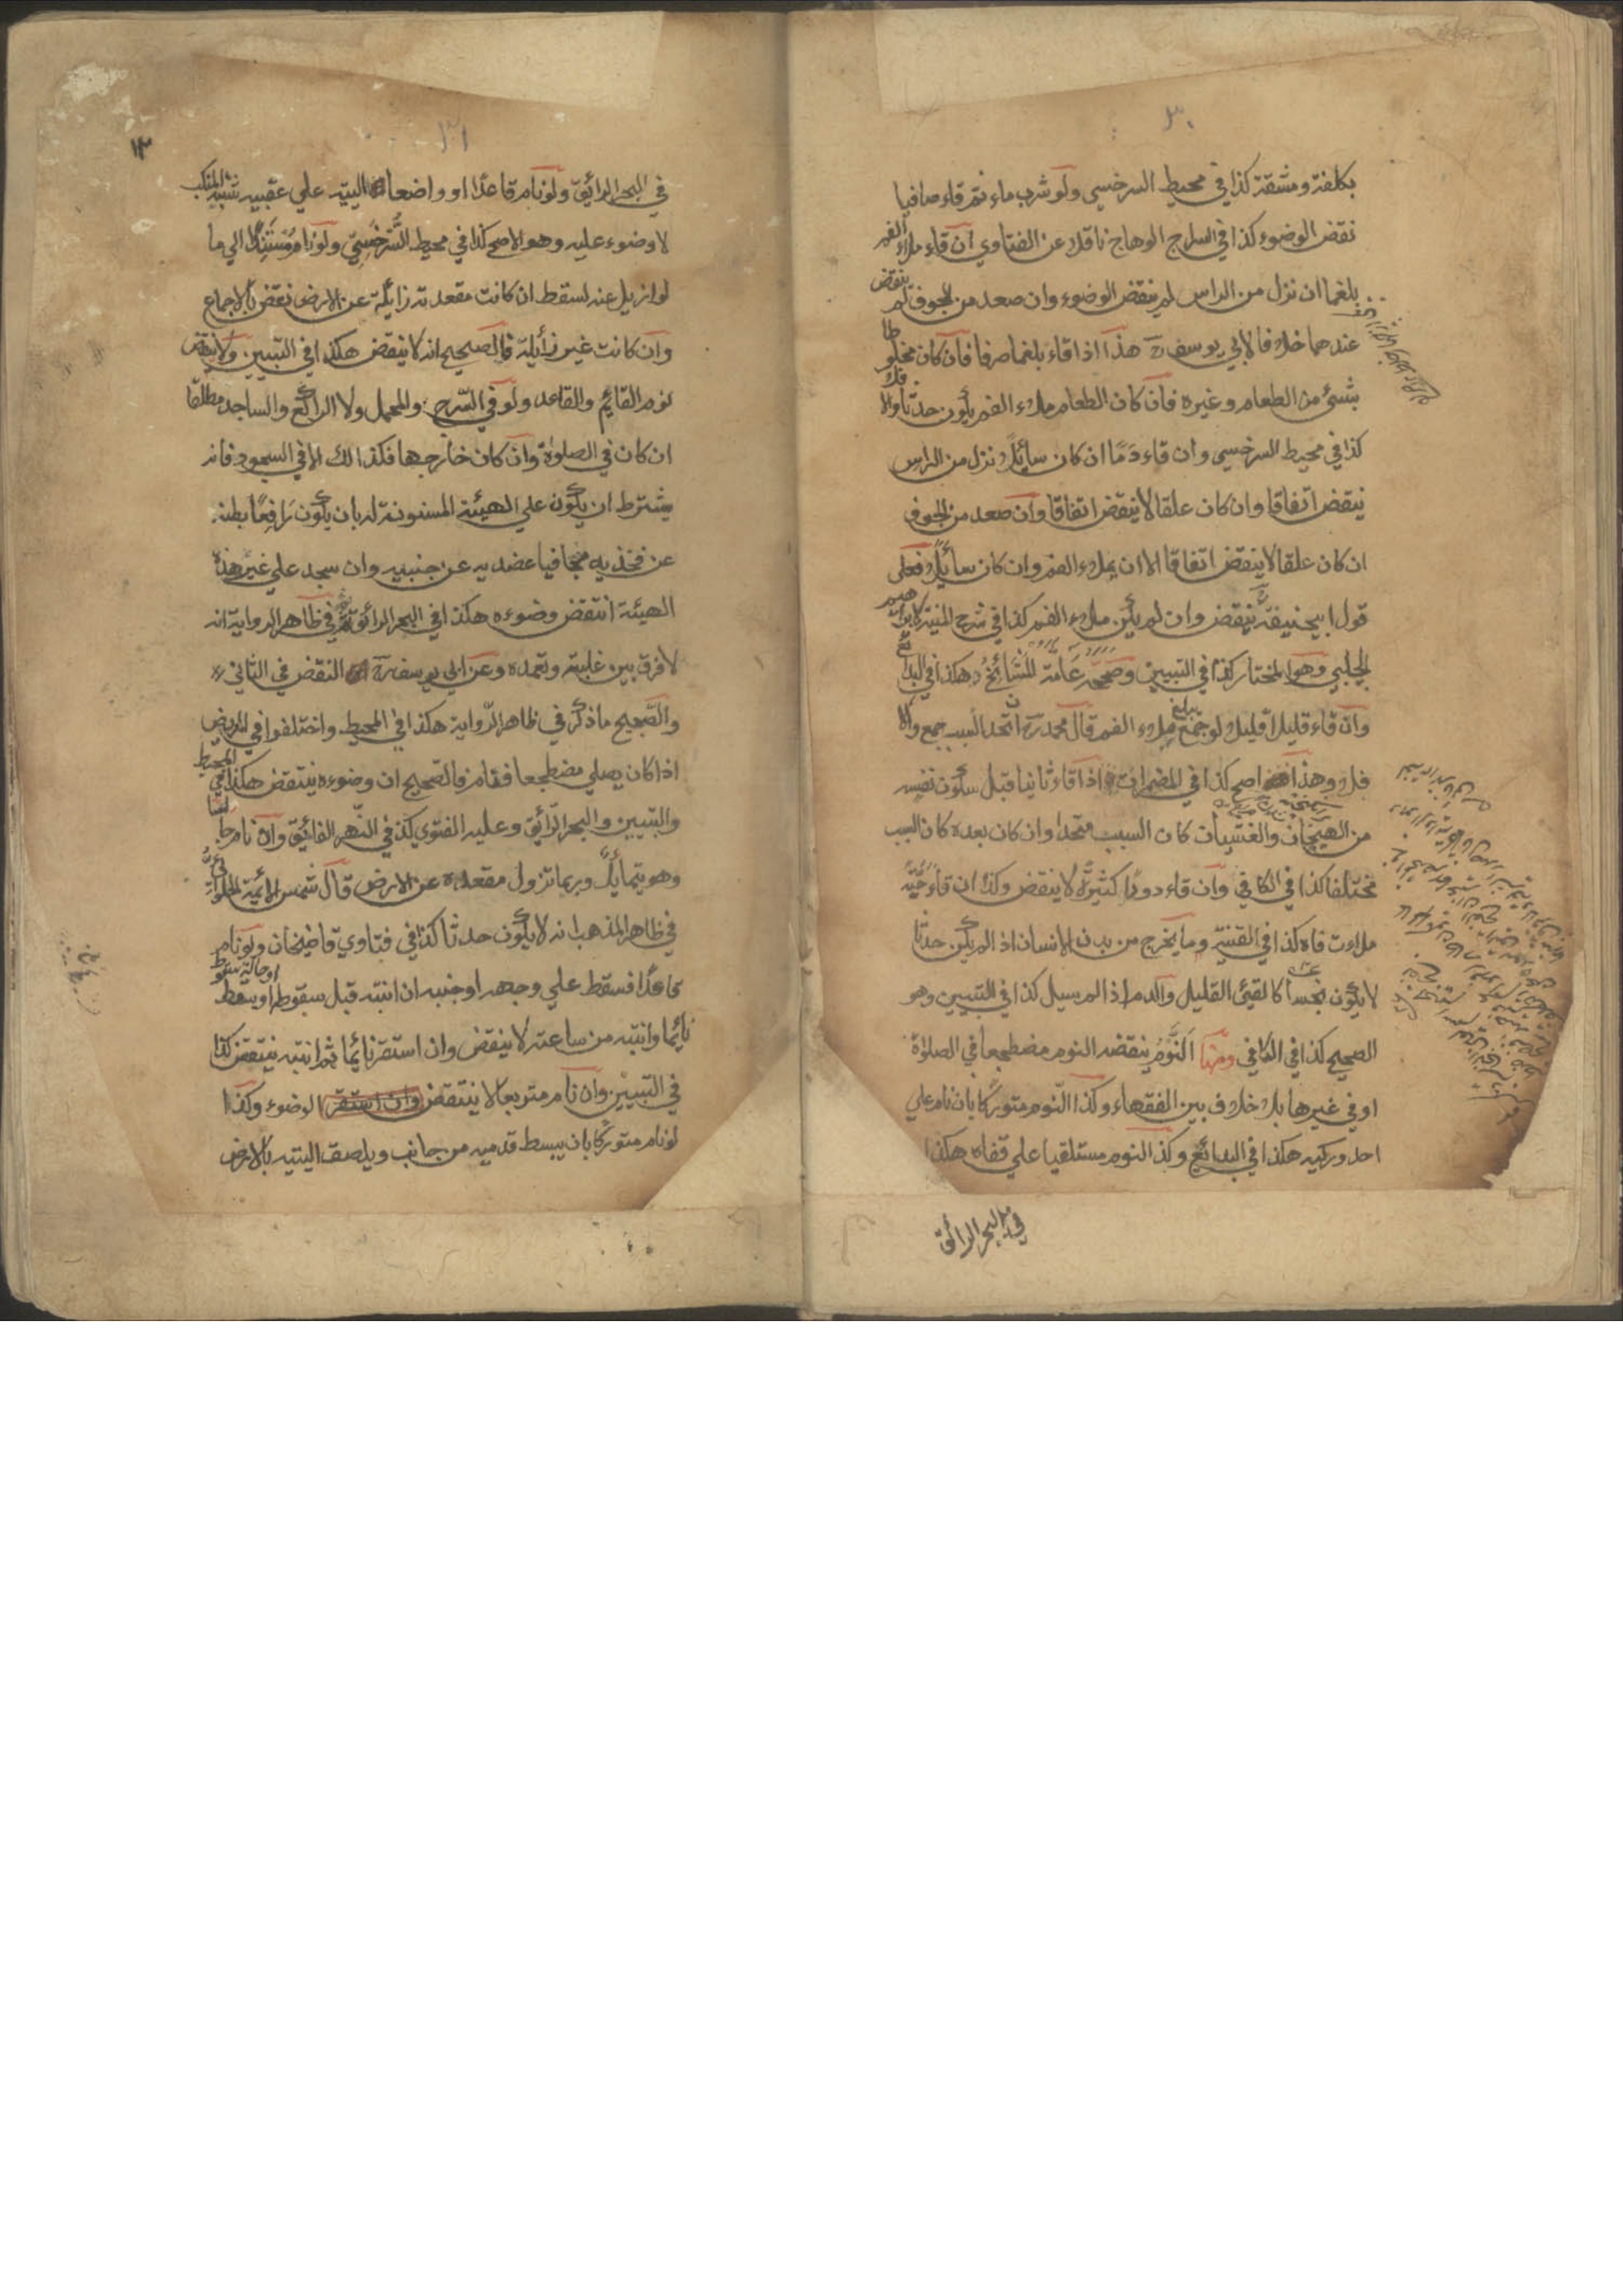 ٣٠
بكلفة ومشقة كذا في محيط السرخسي ولو شرب ماء ثم قاء صافيا
نقض الوضوء كذا في السراج الوهاج ناقلا عن الفتاوي ان قاء ملاء الفم
بلغما ان نزل من الراس لم ينقض الوضوء وان صعد من الجوف لم ينقض
عندهما خلافا لابي يوسف رح هذا اذا قاء بلغما صرفا فان كان مخلوطا
بشئ من الطعام وغيره فان كان الطعام ملاء الفم يكون حدثا والا فلا
كذا في محيط السرخسي وان قاء دما ان كان سائلا نزل من الراس
ينقض اتفاقا وان كان علقا لا ينقض اتفاقا وان صعد من الجوف
ان كان علقا لا ينقض اتفاقا الا ان يملاء الفم وان كان سائلا فعلى
قول ابيحنيفة رح ينقض وان لم يكن ملاء الفم كذا في شرح المنية لابراهيم
الحلبي وهو المختار كذا في التبيين وصححه عامة المشائخ هكذا في البدائع
وان قاء قليلا قليلا لو جمع يبلغ ملاء الفم قال محمد رح ان اتحد السبب جمع والا
فلا وهذا اصح كذا في المضمرات اذا قاء ثانيا قبل سكون نفسه
من الهيجان والغثيان كان السبب متحدا وان كان بعده كان السبب
مختلفا كذا في الكافي وان قاء دودا كثيرة لا ينقض وكذا ان قاء حية
ملاءت فاه كذا في القنية وما يخرج من بدن الانسان اذا لم يكن حدثا
لا يكون نجسا كالقيئ القليل والدم اذا لم يسيل كذا في التبيين وهو
الصحيح كذا في الكافي ومنها النوم ينقضه النوم مضطجعا في الصلوة
او في غيرها بلا خلاف بين الفقهاء وكذا النوم متوركا بان نام علي
احد وركيه هكذا في البدائع وكذا النوم مستلقيا علي قفاه هكذا
في البحر الرائق
٣١
١٣
في البحر الرائق ولو نام قاعدا او واضعا اليتيه علي عقبيه شبه المنكب
لا وضوء عليه وهو الاصح كذا في محيط السرخسي ولو نام مستندا الي ما
لو ازيل عنه لسقط ان كانت مقعدته زائلة عن الارض نقض بالاجماع
وان كانت غير زائلة فالصحيح انه لا ينقض هكذا في التبيين ولا ينقض
نوم القايم والقاعد ولو في السرج والمحمل ولا الراكع والساجد مطلقا
ان كان في الصلوة وان كان خارجها فكذالك الا في السجود فانه
يشترط ان يكون علي الهيئة المسنونة له بان يكون رافعا بطنه
عن فخذيه مجافيا عضديه عن جنبيه وان سجد علي غير هذه
الهيئة انتقض وضوءه هكذا في البحر الرائق ثم في ظاهر الرواية انه
لا فرق بين غلبته وتعمده وعن ابي يوسف رح النقض في الثاني
والصحيح ما ذكر في ظاهر الرواية هكذا في المحيط واختلفوا في المريض
اذا كان يصلي مضطجعا فنام فالصحيح ان وضوءه ينتقض هكذا في المحيط
والتبيين والبحر الرائق وعليه الفتوي كذا في النهر الفائق وان نام جالسا
وهو يتمائل وربما تزول مقعده عن الارض قال شمس الائمة الحلوائي
في ظاهر المذهب انه لا يكون حدثا كذا في فتاوي قاضيخان ولو نام
قاعدا فسقط علي وجهه او جنبه ان انتبه قبل سقوطه او حالة سقوطه او سقط
نائما وانتبه من ساعته لا ينقض وان استقر نائما ثم انتبه ينتقض كذا
في التبيين وان نام متربعا لا ينتقض وان استقر الوضوء وكذا
لو نام متوركا بان يبسط قدميه من جانب ويلصق اليتيه بالارض